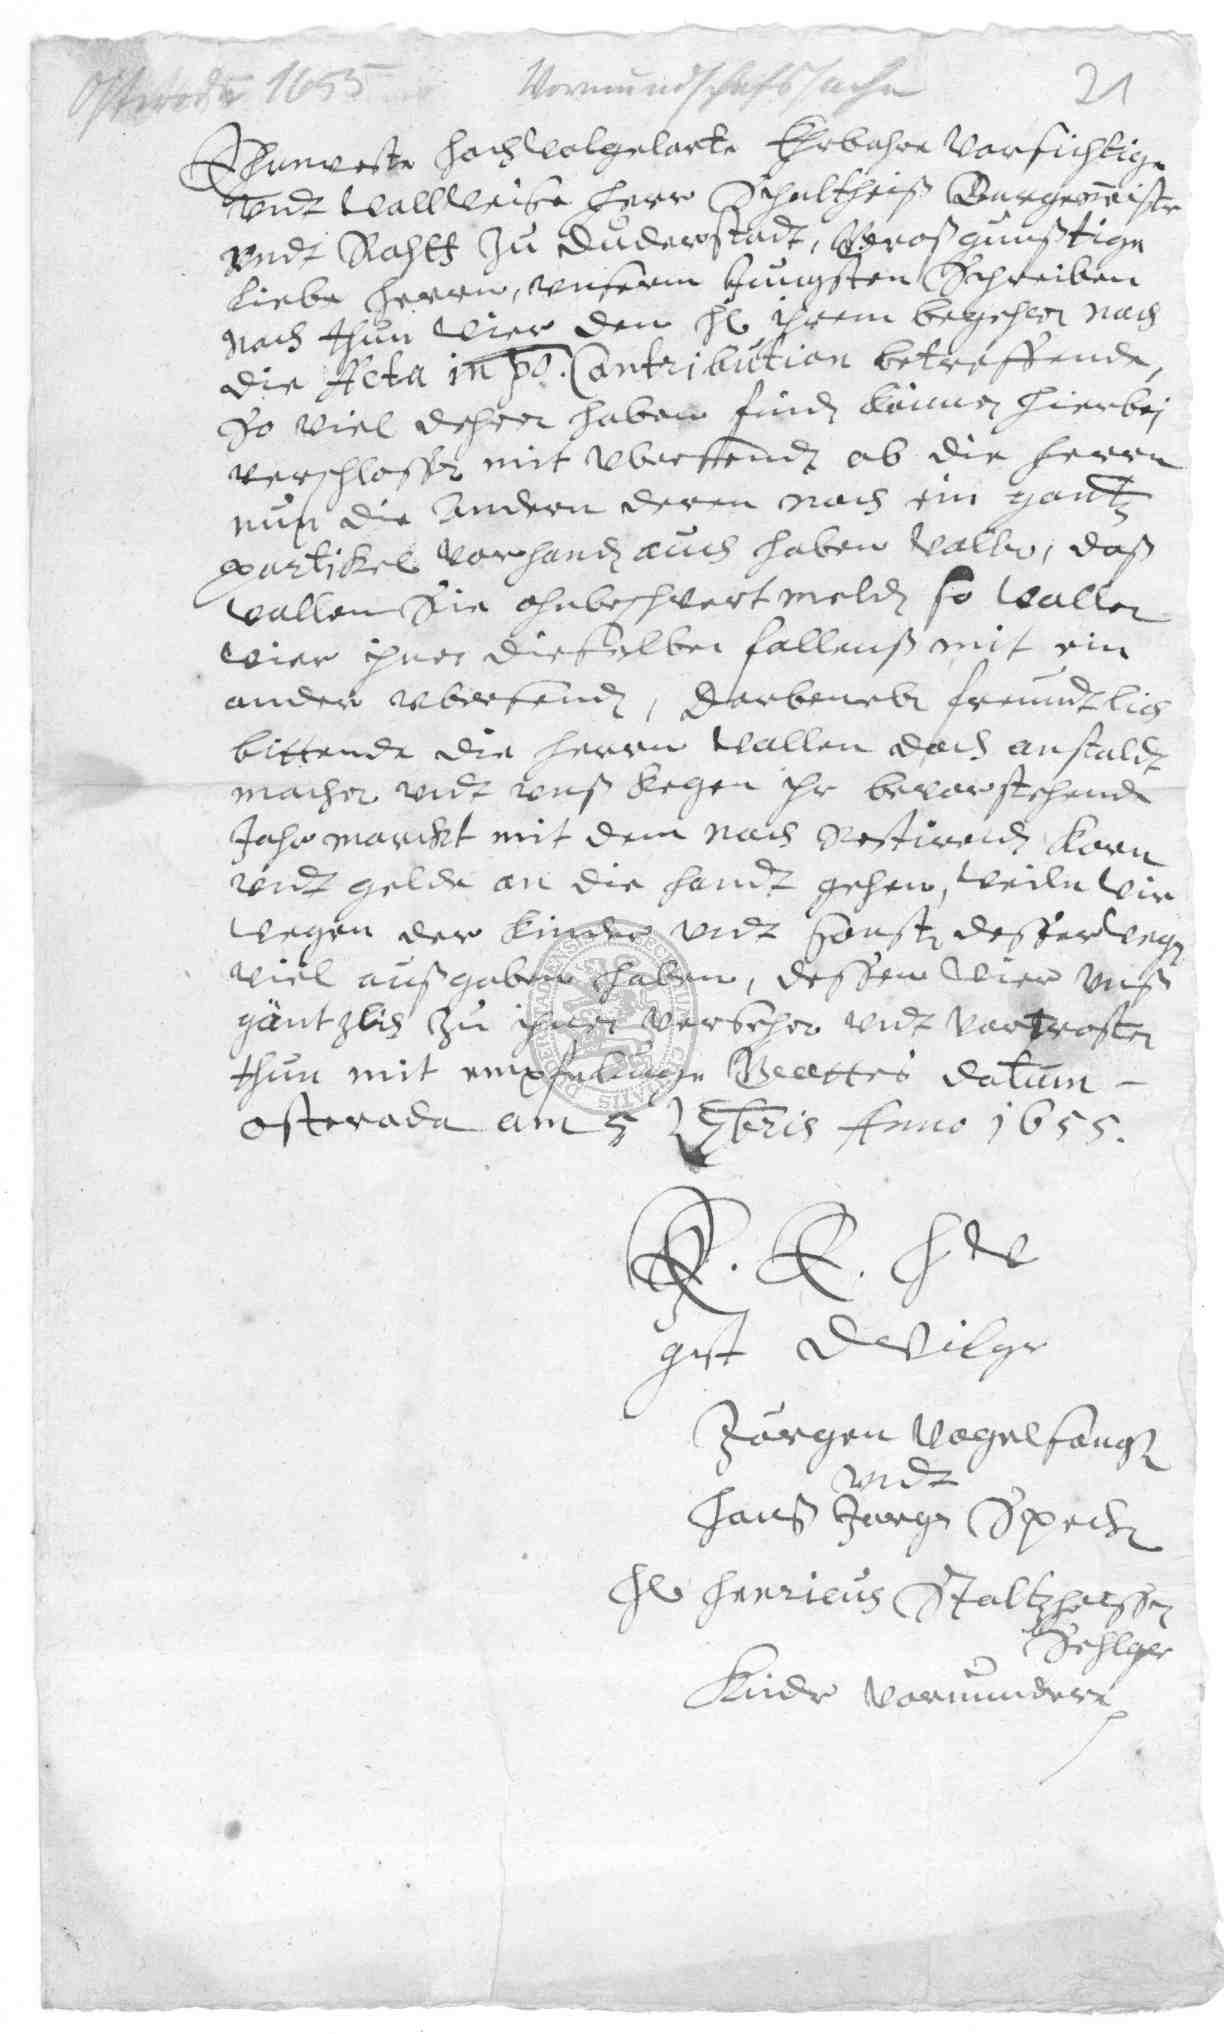 Osterode 1655 Vormundschaftssache 21
Ehrnveste Hochwolgelarte Ehrbahre Vorsichtige
vndt Wollweise Herr Schultheiß Burgermeister
vndt Rahtt zu Duderstadt, Großgunstige
liebe Herrn, vnserm Jungsten Schreiben
nach thun wier den H ihrem begehren nach
die Acta in po. Contribution betreffende,
so viel dehren haben finden können hierbej
verschlossen mit vbersenden ob die Herrn
nun die andern deren noch ein gantz
partikel vorhanden auch haben wollen, daß
wollen Sie ohnbeschwert melden so wollen
wier ihnen dieselben fallenß mit ein
ander vbersenden, Darbeneben freundtlich
bittende die Herrn wollen doch anstaldt
machen vndt vnß kegen ihr bevorstehende
Jahr marckt mit dem noch Restirenden Korn
vndt gelde an die handt gehen, weiln wir
wegen der Kinder vndt sonsten desserwegen
viel außgaben haben, dessen wier vnß
gäntzlich zu ihnen versehen vndt vortrosten
thun mit empfelunge Gottes datum
Osterode am 5 Anno 1655.
E. E. H
gst DWilge
Jürgen Vogelsangk
vndt
Hanß Jurgen Speck
H Henricus Staltzhessen
Sehlger
Kinder Vormundere